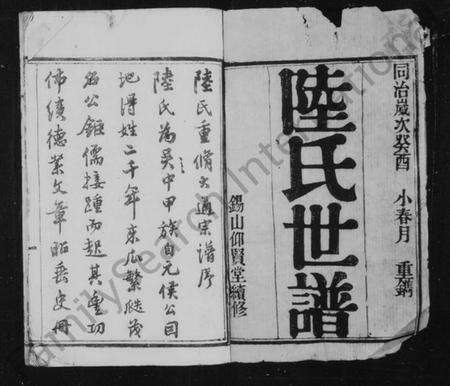 同治歲次癸酉 小春月 重鐫
陸氏世譜
錫山仰賢堂續修
陸氏重脩大通宗譜序
陸氏為吳中甲族自元侯公因
地得姓二千年來瓜繁瓞茂
公鉅儒接踵而起其豐功
偉績德業文章昭垂史冊
FamilySearch International